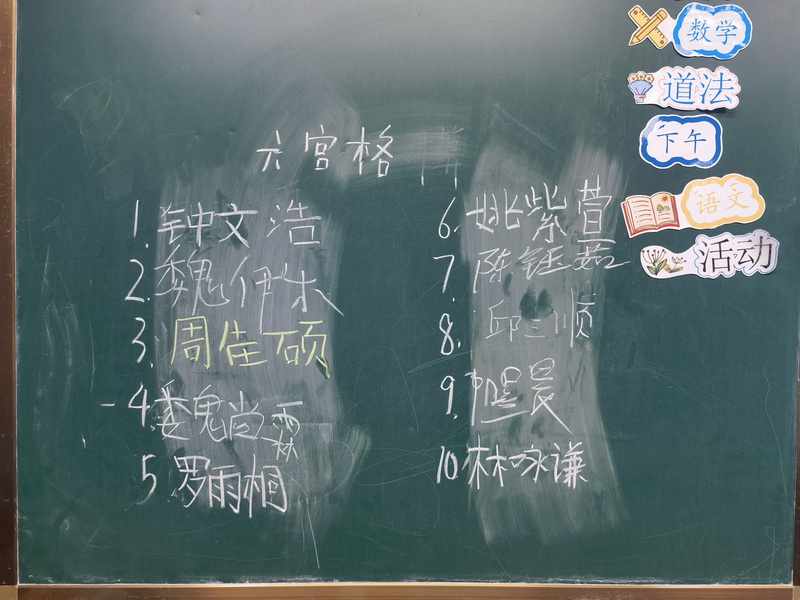 六宫格
1.钟文浩
2.魏伊木
3.周佳硕
4.魏尚霖
5罗雨桐
6.姚紫萱
7.陈钰茹
8.邱三顺
9.晨
10.林咏谦
数学
道法
下午
语文
活动